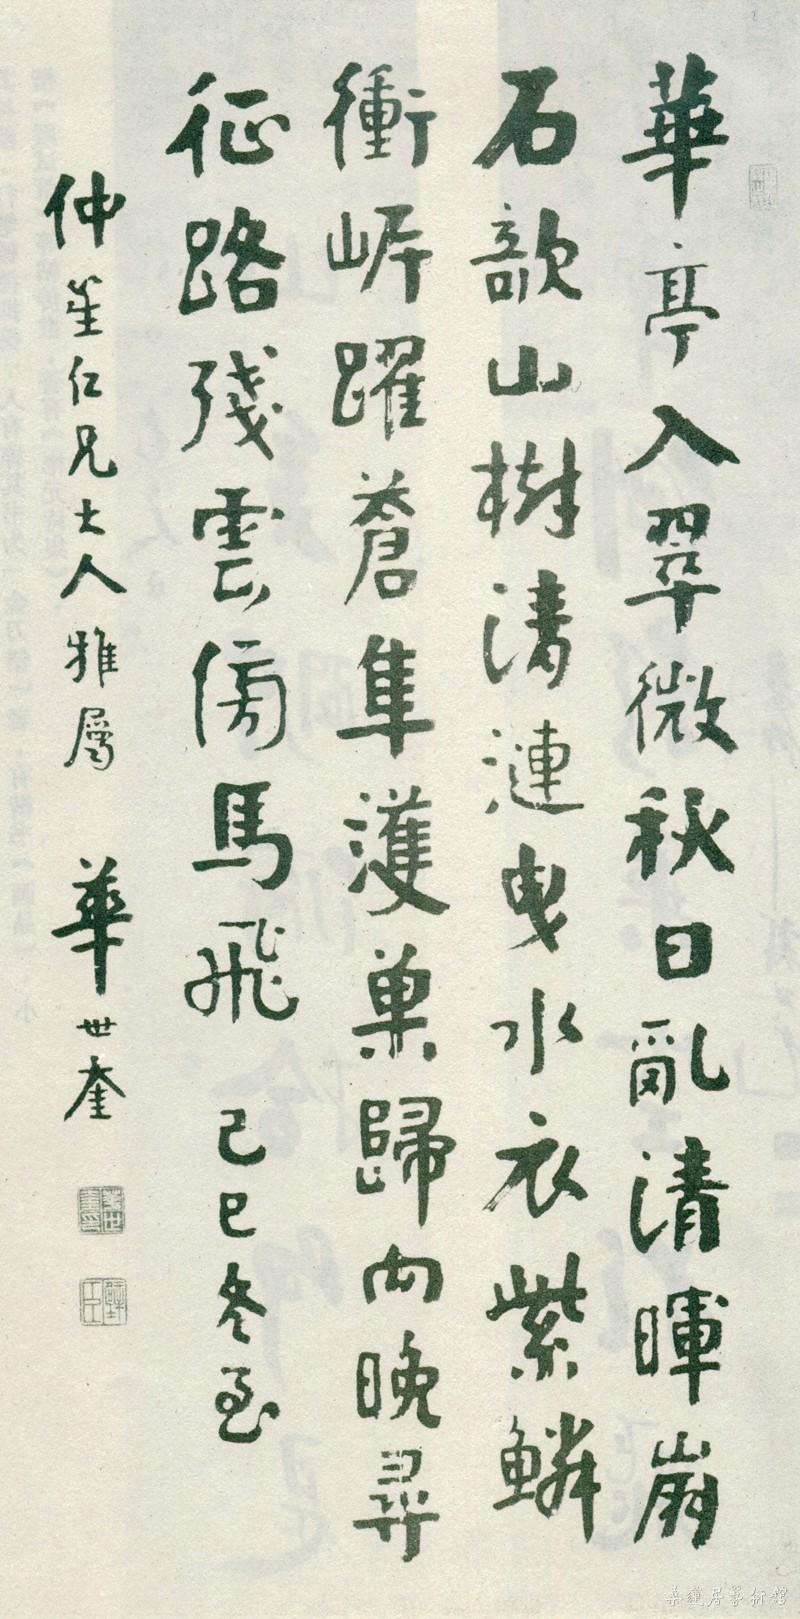 華亭入翠微秋日亂清暉崩
石欹山樹清漣曳水衣紫鱗
衝岸躍蒼隼護巢歸向晚尋
征路殘雲傍馬飛 己巳冬至
仲笙仁兄大人雅屬 華世奎
桑蓮居藝術館